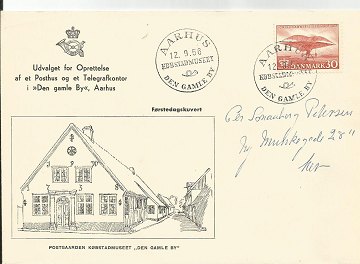 Udvalget for Oprettelse
af et Posthus og et Telegrafkontor
i »Den gamle By«, Aarhus
AARHUS
12.9.56
KØBSTADMUSEET
DEN GAMLE BY
AARHUS
12.9
KØBSTADMUSEET
DEN GAMLE BY
DANMARK 30
Førstedagskuvert
Per Petersen
Ny 28
POSTGAARDEN KØBSTADMUSEET „DEN GAMLE BY"